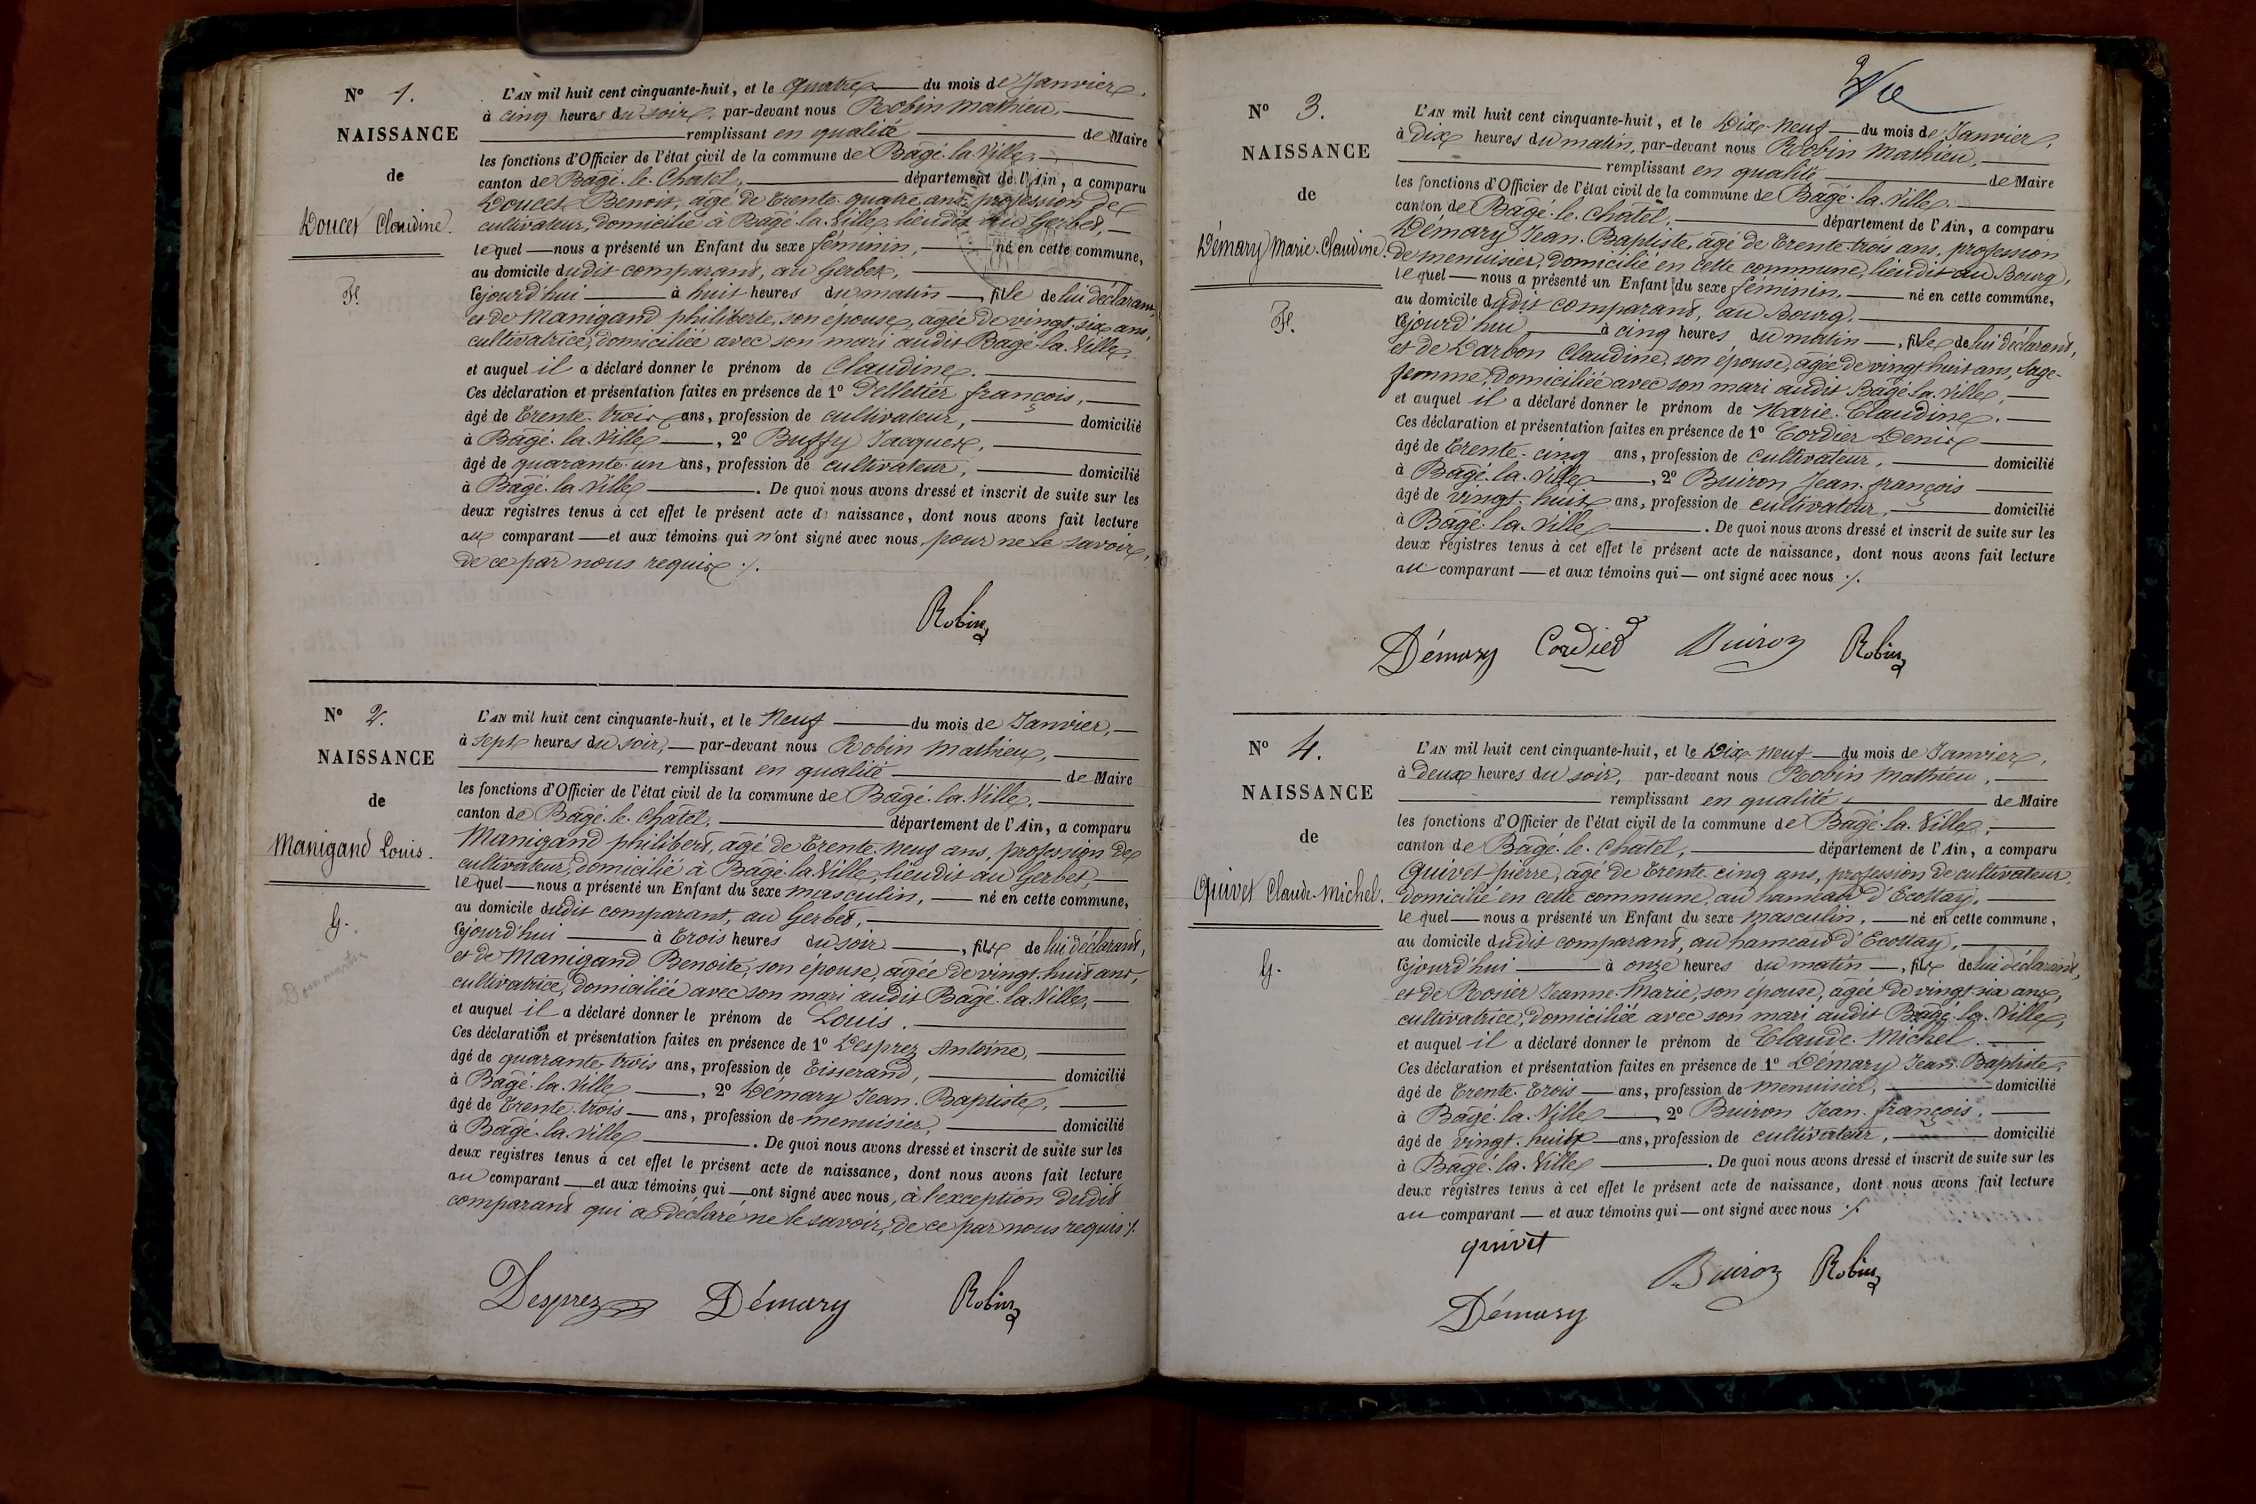 N° 1.
NAISSANCE
de
Doucet Claudine.
F.
L'AN mil huit cent cinquante-huit, et le quatre du mois de Janvier,
à cinq heures du soir, par-devant nous Robin Mathieu,
remplissant en qualité de Maire
les fonctions d'Officier de l'état civil de la commune de Bâgé-la-Ville,
canton de Bâgé-le-Chatel, département de l'Ain, a comparu
Doucet Benoit, âgé de trente-quatre ans, profession de
cultivateur, domicilié à Bâgé-la-Ville, lieudit au Gerbet,
lequel nous a présenté un Enfant du sexe féminin, né en cette commune,
au domicile dudit comparant, au Gerbet,
cejourd'hui à huit heures du matin, fille de lui déclarant,
et de Manigand philiberte, son épouse, agée de vingt-six ans,
cultivatrice, domiciliée avec son mari audit Bâgé-la-Ville,
et auquel il a déclaré donner le prénom de Claudine.
Ces déclaration et présentation faites en présence de 1° Pelletier françois,
âgé de trente-trois ans, profession de cultivateur, domicilié
à Bâgé-la-Ville, 2° Buffy Jacques,
âgé de quarante-un ans, profession de cultivateur, domicilié
à Bâgé-la-Ville. De quoi nous avons dressé et inscrit de suite sur les
deux registres tenus à cet effet le présent acte de naissance, dont nous avons fait lecture
au comparant et aux témoins qui n'ont signé avec nous, pour ne le savoir,
de ce par nous requis ./.
Robin
N° 2.
NAISSANCE
de
Manigand Louis.
G.
L'AN mil huit cent cinquante-huit, et le neuf du mois de Janvier,
à sept heures du soir, par-devant nous Robin Mathieu,
remplissant en qualité de Maire
les fonctions d'Officier de l'état civil de la commune de Bâgé-la-Ville,
canton de Bâgé-le-Châtel, département de l'Ain, a comparu
Manigand philibert, âgé de trente-neuf ans, profession de
cultivateur, domicilié à Bâgé-la-Ville, lieudit au Gerbet,
lequel nous a présenté un Enfant du sexe masculin, né en cette commune,
au domicile dudit comparant, au Gerbet,
cejourd'hui à trois heures du soir, fils de lui déclarant,
et de Manigand Benoite, son épouse, agée de vingt-huit ans,
cultivatrice, domiciliée avec son mari audit Bâgé-la-Ville,
et auquel il a déclaré donner le prénom de Louis.
Ces déclaration et présentation faites en présence de 1° Desprez Antoine,
âgé de quarante-trois ans, profession de tisserand, domicilié
à Bâgé-la-Ville, 2° Démary Jean-Baptiste,
âgé de trente-trois ans, profession de menuisier, domicilié
à Bâgé-la-Ville. De quoi nous avons dressé et inscrit de suite sur les
deux registres tenus à cet effet le présent acte de naissance, dont nous avons fait lecture
au comparant et aux témoins qui ont signé avec nous, à l'exception dudit
comparant qui a déclaré ne le savoir, de ce par nous requis ./.
Desprez Démary Robin
N° 3.
NAISSANCE
de
Démary Marie-Claudine.
F.
L'AN mil huit cent cinquante-huit, et le Dix-neuf du mois de Janvier,
à Dix heures du matin, par-devant nous Robin Mathieu,
remplissant en qualité de Maire
les fonctions d'Officier de l'état civil de la commune de Bâgé-la-Ville,
canton de Bâgé-le-Châtel, département de l'Ain, a comparu
Démary Jean-Baptiste, âgé de trente-trois ans, profession
de menuisier, domicilié en cette commune, lieudit au Bourg,
lequel nous a présenté un Enfant du sexe féminin, né en cette commune,
au domicile dudit comparant, au Bourg,
cejourd'hui à cinq heures du matin, fille de lui déclarant,
et de Darbon Claudine, son épouse, agée de vingt-huit ans, sage-
femme, domiciliée avec son mari audit Bâgé-la-Ville,
et auquel il a déclaré donner le prénom de Marie-Claudine.
Ces déclaration et présentation faites en présence de 1° Cordier Denis
âgé de trente-cinq ans, profession de cultivateur, domicilié
à Bâgé-la-Ville, 2° Buiron Jean-françois
âgé de vingt-huit ans, profession de cultivateur, domicilié
à Bâgé-la-Ville. De quoi nous avons dressé et inscrit de suite sur les
deux registres tenus à cet effet le présent acte de naissance, dont nous avons fait lecture
au comparant et aux témoins qui ont signé avec nous ./.
Démary Cordier Buiron Robin
N° 4.
NAISSANCE
de
Quivet Claude-Michel.
G.
L'AN mil huit cent cinquante-huit, et le Dix-neuf du mois de Janvier,
à Deux heures du soir, par-devant nous Robin Mathieu,
remplissant en qualité de Maire
les fonctions d'Officier de l'état civil de la commune de Bâgé-la-Ville,
canton de Bâgé-le-Chatel, département de l'Ain, a comparu
Quivet pierre, âgé de trente-cinq ans, profession de cultivateur,
domicilié en cette commune, au hameau d'Ecottay,
lequel nous a présenté un Enfant du sexe masculin, né en cette commune,
au domicile dudit comparant, au hameau d'Ecottay,
cejourd'hui à onze heures du matin, fils de lui déclarant,
et de Rosier Jeanne-Marie, son épouse, agée de vingt-six ans,
cultivatrice, domiciliée avec son mari audit Bâgé-la-Ville,
et auquel il a déclaré donner le prénom de Claude-Michel.
Ces déclaration et présentation faites en présence de 1° Démary Jean-Baptiste,
âgé de trente-trois ans, profession de menuisier, domicilié
à Bâgé-la-Ville, 2° Buiron Jean-françois,
âgé de vingt-huit ans, profession de cultivateur, domicilié
à Bâgé-la-Ville. De quoi nous avons dressé et inscrit de suite sur les
deux registres tenus à cet effet le présent acte de naissance, dont nous avons fait lecture
au comparant et aux témoins qui ont signé avec nous ./.
quivet
Buiron Robin
Démary